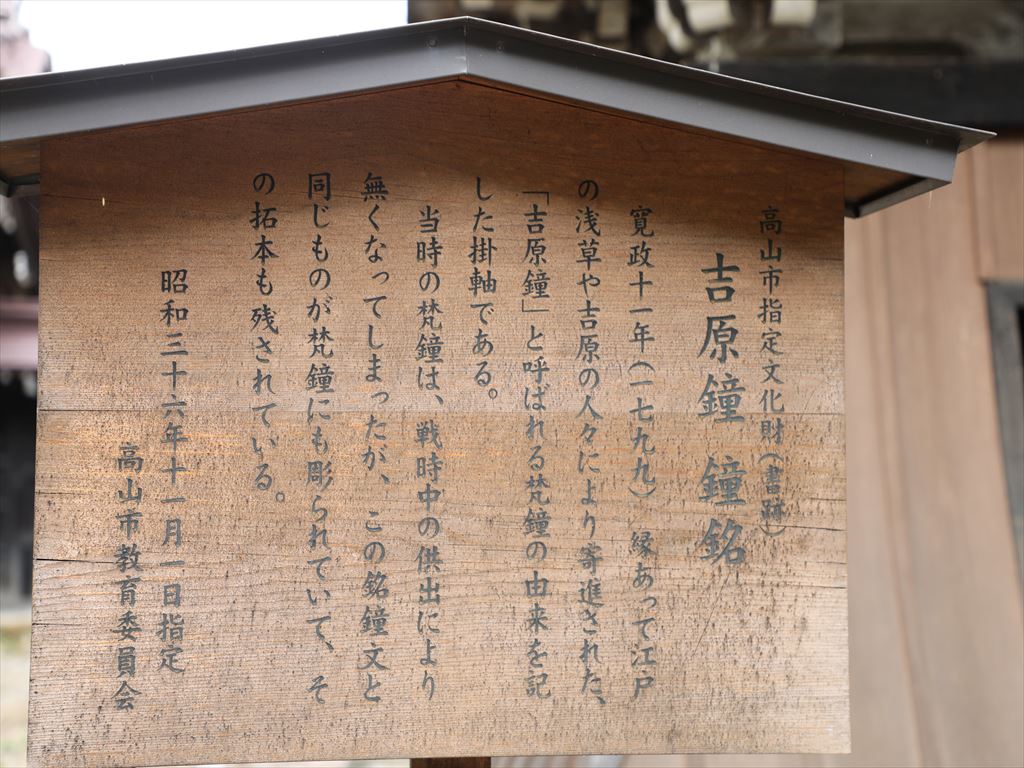 高山市指定文化財(書跡)
吉原鐘 鐘銘
寛政十一年(一七九九) 縁あって江戸
の浅草や吉原の人々により寄進された、
「吉原鐘」と呼ばれる梵鐘の由来を記
した掛軸である。
当時の梵鐘は、戦時中の供出により
無くなってしまったが、この銘鐘文と
同じものが梵鐘にも彫られていて、そ
の拓本も残されている。
昭和三十六年十一月一日指定
高山市教育委員会